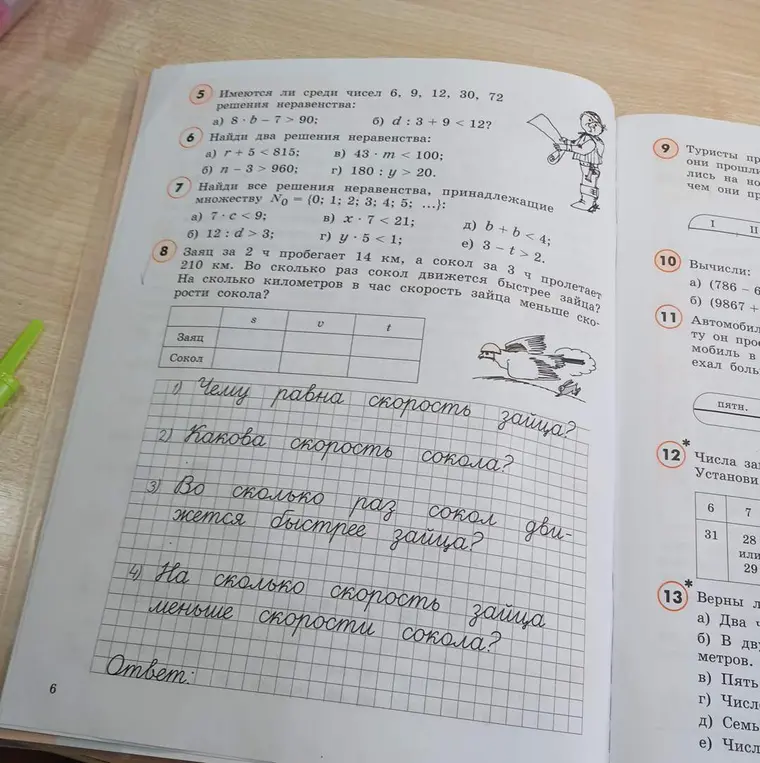 5 Имеются ли среди чисел 6, 9, 12, 30, 72
решения неравенства:
а) 8 · b – 7 > 90; б) d : 3 + 9 < 12?
6 Найди два решения неравенства:
а) r + 5 < 815; в) 43 · m < 100;
б) n – 3 > 960; г) 180 : y > 20.
7 Найди все решения неравенства, принадлежащие
множеству N₀ = {0; 1; 2; 3; 4; 5; ...}:
а) 7 · c < 9; в) x · 7 < 21; д) b + b < 4;
б) 12 : d > 3; г) y · 5 < 1; е) 3 – t > 2.
8 Заяц за 2 ч пробегает 14 км, а сокол за 3 ч пролетает
210 км. Во сколько раз сокол движется быстрее зайца?
На сколько километров в час скорость зайца меньше ско-
рости сокола?
s v t
Заяц
Сокол
1) Чему равна скорость зайца?
2) Какова скорость сокола?
3) Во сколько раз сокол дви-
жется быстрее зайца?
4) На сколько скорость зайца
меньше скорости сокола?
Ответ:
6
9 Туристы пр
они прошли
лись на но
чем они пр
I II
10 Вычисли:
а) (786 – 6
б) (9867 +
11 Автомобил
ту он прое
мобиль в
ехал боль
пятн.
12* Числа за
Установи
6 7
31 28
или
29
13* Верны л
а) Два ч
б) В дв
метров.
в) Пять
г) Числ
д) Семь
е) Числ